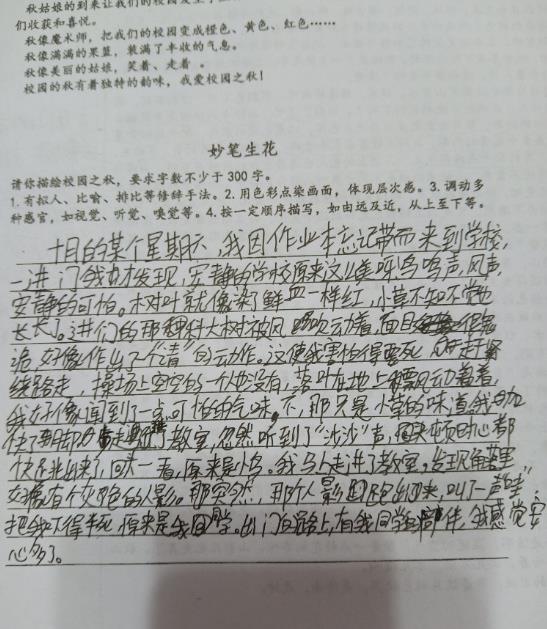 秋姑娘的到来让我们的校园发生了
们收获和喜悦。
秋像魔术师，把我们的校园变成橙色、黄色、红色……
秋像满满的果篮，装满了丰收的气息。
秋像美丽的姑娘，笑着、走着 。
校园的秋有着独特的韵味，我爱校园之秋！
妙笔生花
请你描绘校园之秋，要求字数不少于 300 字。
1. 有拟人、比喻、排比等修辞手法。2. 用色彩点染画面，体现层次感。3. 调动多
种感官，如视觉、听觉、嗅觉等。4. 按一定顺序描写，如由远及近，从上至下等。
十月的某个星期六，我因作业本忘记带而来到学校，
一进门我才发现，安静的学校原来这么 鸟鸣声，风声，
安静的可怕。树叶就像染了鲜血一样红，小草不知不觉地
长长了。进们的那种大树被风吹动着，面目
诡，好像作出了个“请”的动作。这使我害怕得要死，赶紧
绕路走，操场上空空的一个人也没有，落叶在地上飘动着，
我好像闻到了一点可怕的气味，不，那只是小草的味道，我加
快了脚步走进了教室，忽然听到了“沙沙”声，顿时心都
快跳出来了，回头一看，原来是小鸟。我马上走进了教室。发现角落里
好像有个灰色的人影。那突然，那个人影跑出来，叫了一声“哇”
把我吓得半死，原来是我同学。出门的路上，有我同学陪伴，我感觉安
心多了。